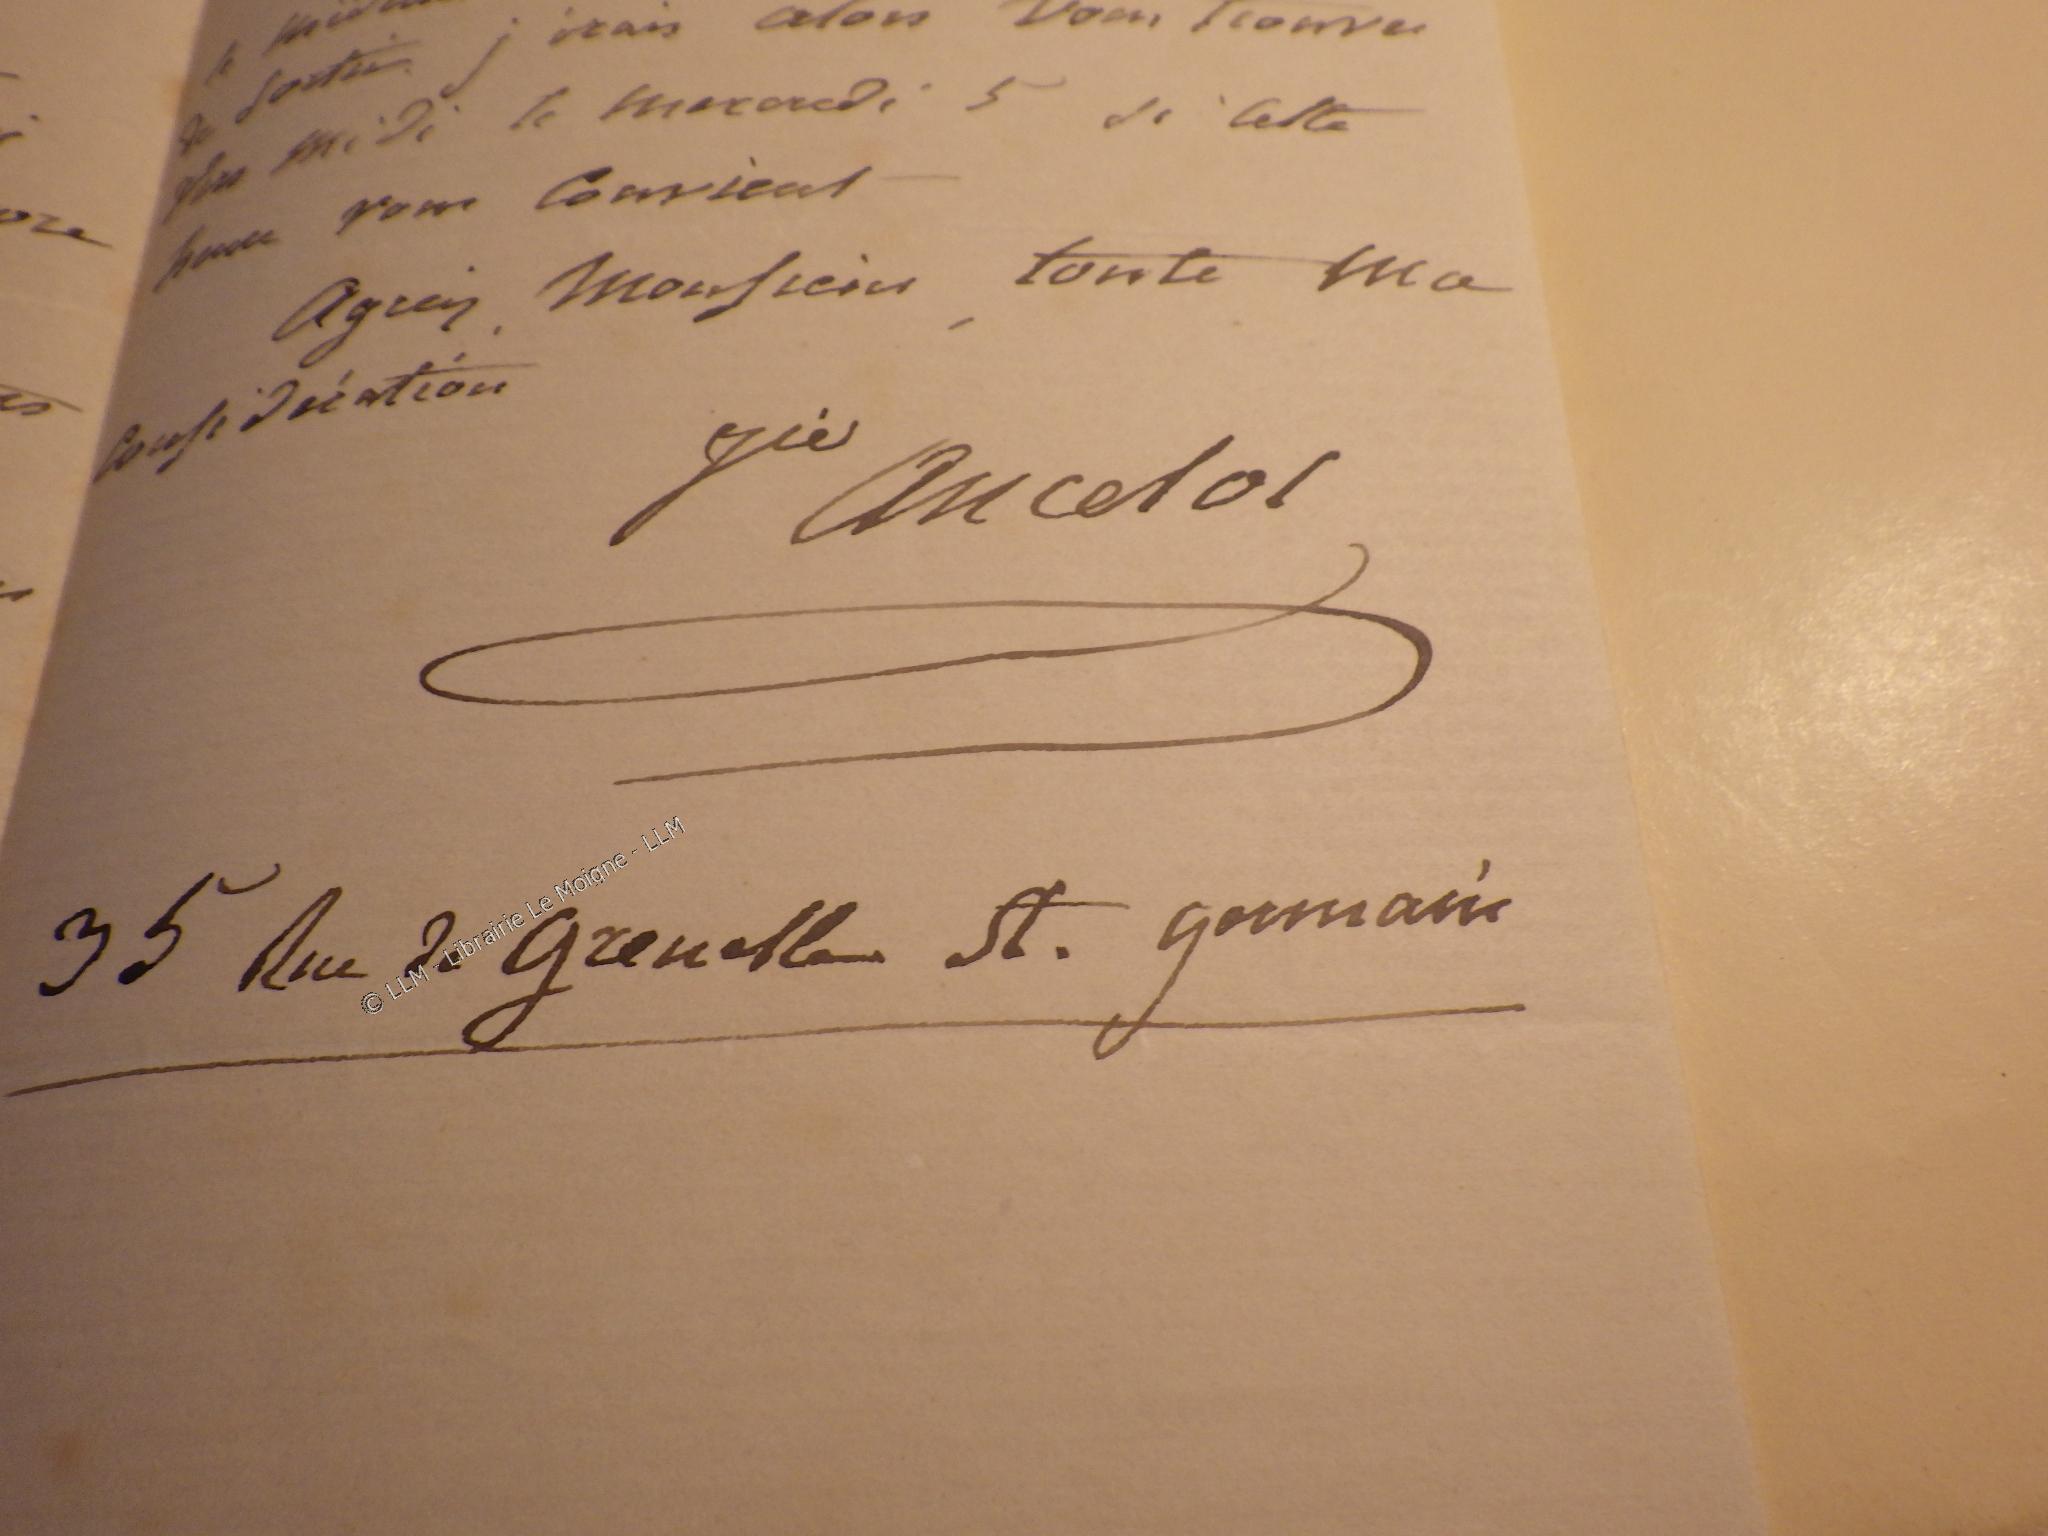 de sortir. j'irais alors vous trouver
vers midi le mercredi 5 si cette
heure vous convient
Agréez, Monsieur, toute ma
considération
Vie Ancelot
35 Rue de Grenelle St. germain
© LLM - Librairie Le Moigne - LLM